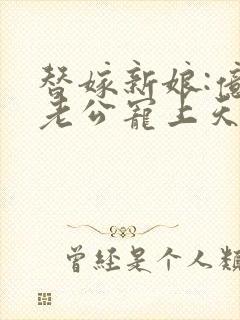 替嫁新娘:億
老公寵上天
曾經是个人類